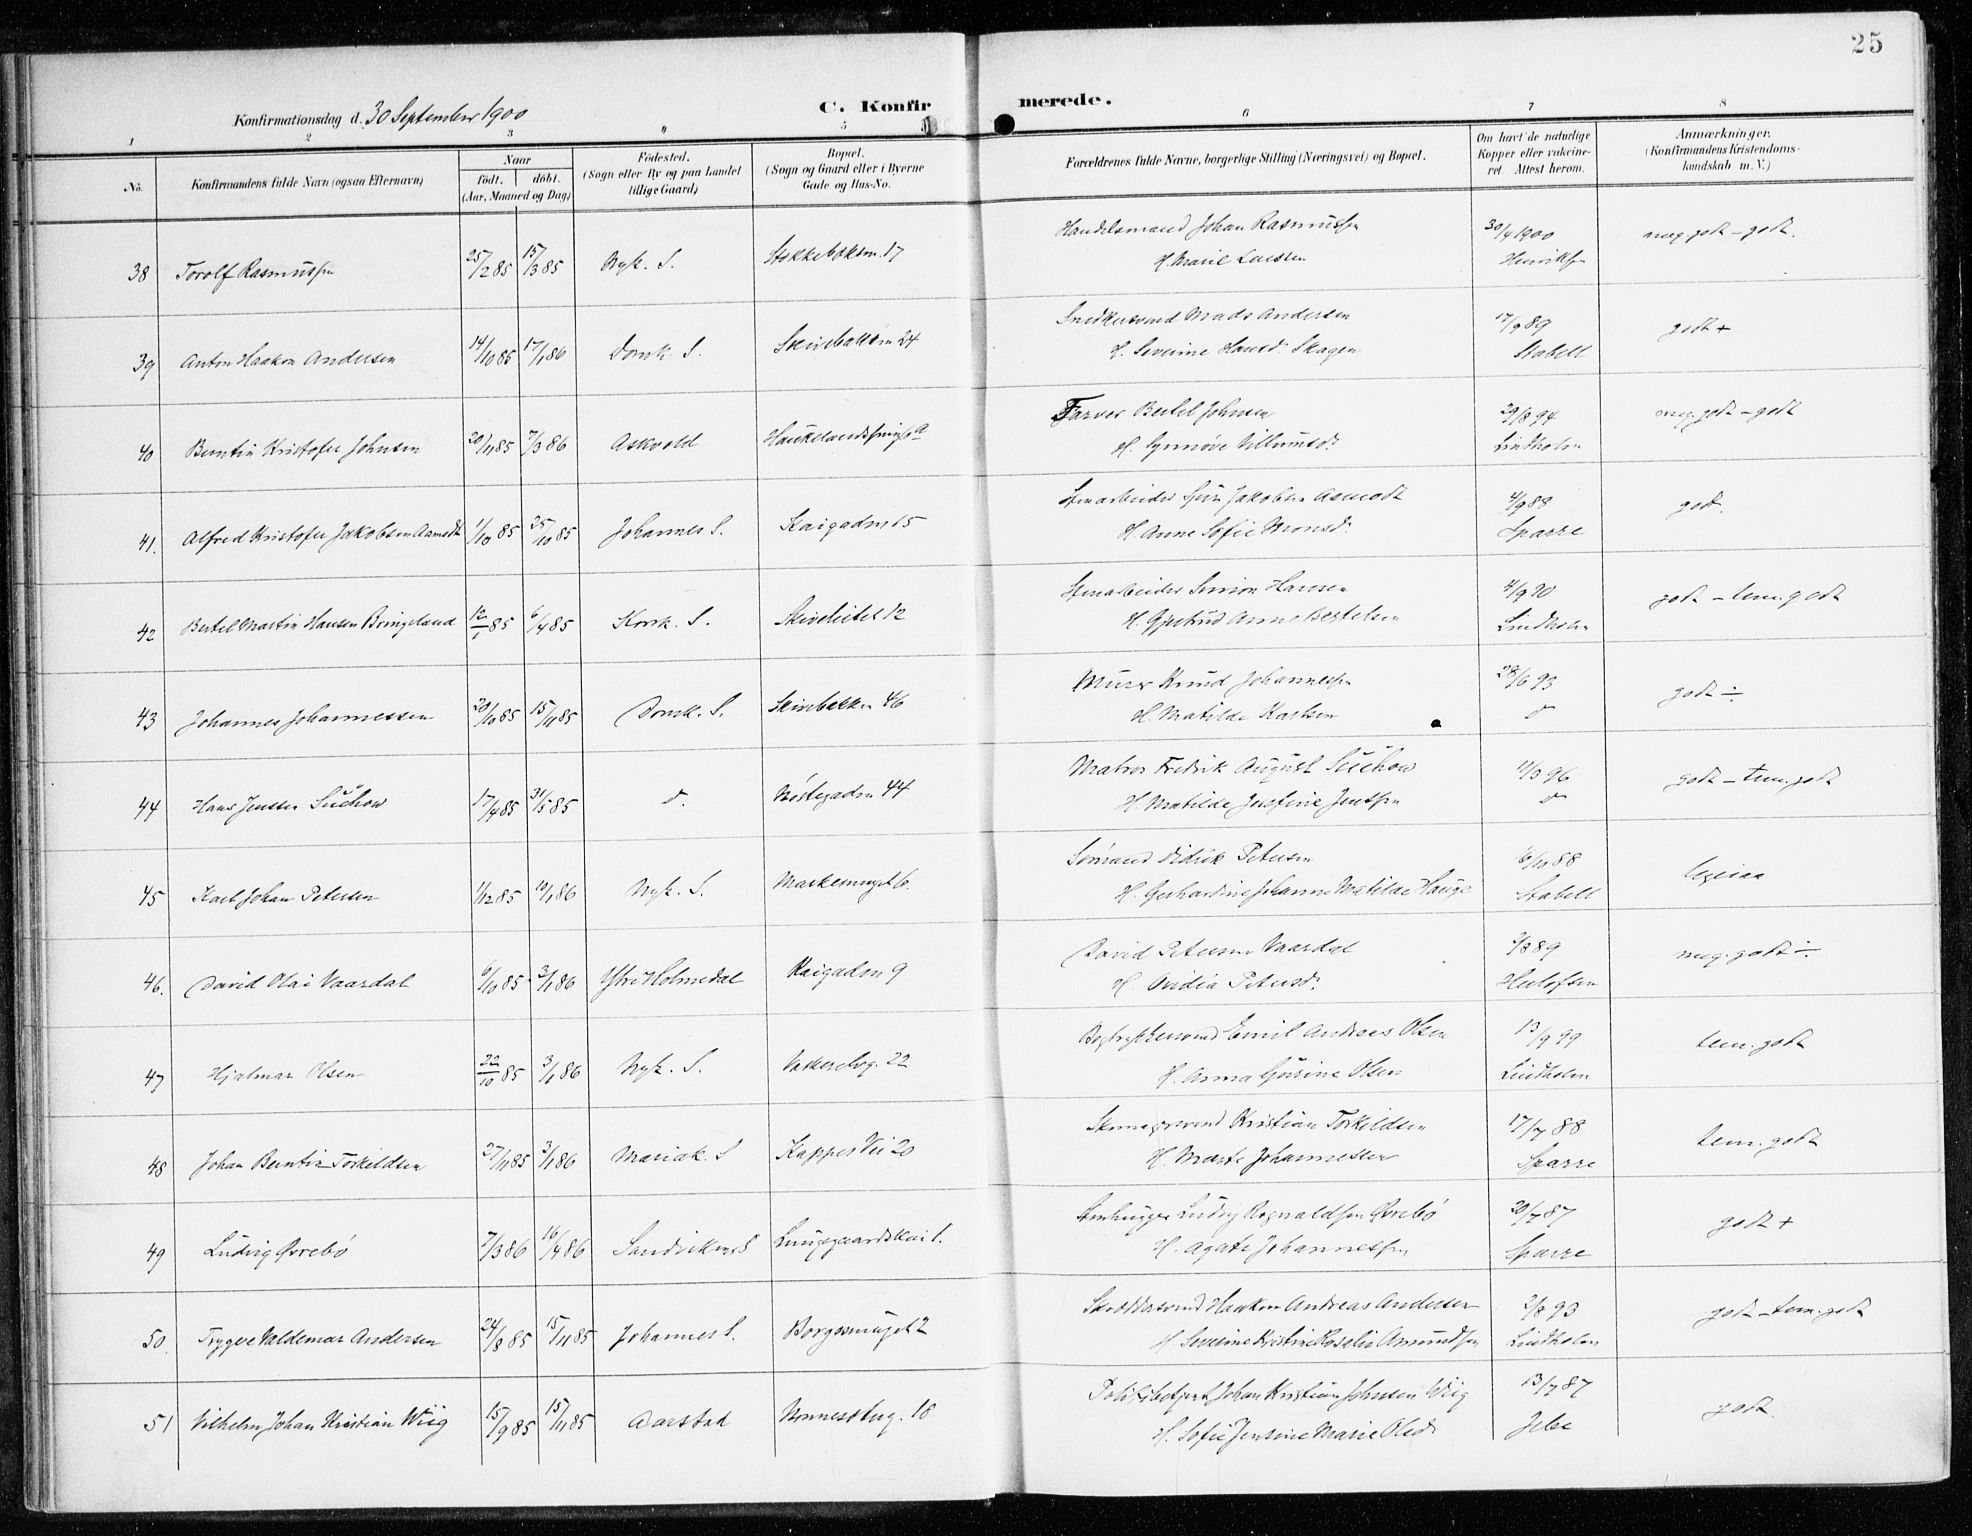 25
Konfirmationsdag d. 30 September 1900
C. Konfir merede.
1 2 3 4 5 6 7 8
No. Konfirmandens fulde Navn (ogsaa Efternavn) Naar født, døbt. (Aar, Maaned og Dag) Fødested. (Sogn eller By og paa Landet tillige Gaard) Bopæl. (Sogn og Gaard eller i Byerne Gade og Hus-No. Forældrenes fulde Navne, borgerlige Stilling (Næringsvei) og Bopæl. Om havt de naturlige Kopper eller vaccineret. Attest herom. Anmærkninger. (Konfirmandens Kristendomskundskab m. V.)
Handelsmand Johan Rasmussen 30/4 1900 meg. godt - godt.
38 Torolf Rasmussen 25/2 85 15/3 85 Nyk. S. 17 H. Marie Larsen Henriksen
Snedkersvend Mads Andersen 17/9 89 godt +
39 Anton Haakon Andersen 14/10 85 17/1 86 Domk. S. Skivebakken 24 H. Severine Hansd. Skagen Stabell
Farver Bertel Johnsen 29/8 94 meg. godt - godt
40 Berntin Kristofer Johnsen 20/11 85 7/3 86 Askvold H. Synnøve Villumsd. Lindholm
Stenarbeider Jakobsen Aamodt 4/9 88 godt.
41. Alfred Kristofer Jakobsen Aamodt 1/10 85 25/10 85 Johannes S. Kaigaden 15 H. Anne Sofie Monsd. Sparre
Stenarbeider Simon Hansen 4/9 90 godt - tem. godt
42 Bertel Martin Hansen Bringeland 12/1 85 6/4 85 Korsk. S. 12 H. Gjertrud Anne Bertelsen Lindholm
Murer Knud Johannessen 28/6 93 godt ÷
43 Johannes Johannessen 20/10 85 15/11 85 Domk. S. Skivebakken 46 H. Matilde Karlsen
Matros Fredrik August Süchow 11/3 96 godt - tem. godt
44 Hans Jenssen Süchow 17/4 85 31/5 85 Nøstegaden 44 H. Matilde Josefine Jenssen
Sømand Didrik Petersen 6/10 88
45 Karl Johan Petersen 1/12 85 10/1 86 Nyk. S. 6. H. Gerhardine Johanne Matilde Hauge Stabell
David Petersen Vaardal 2/8 89 meg. godt ÷
46. David Olai Vaardal 6/10 85 3/1 86 Ytre Holmedal Kaigaden 9 H. Ovidia Petersd.
Bogtrykkersvend Emil Andreas Olsen 13/9 99 tem. godt
47 Hjalmar Olsen 22/10 85 3/1 86 Nyk. S. 22 H. Anna Gurine Olsen Lindholm
Skomagersvend Kristian Torkildsen 17/7 88 tem. godt
48 Johan Berntin Torkildsen 27/11 85 3/1 86 Mariak. S Kappes Vei 20 H. Marte Johannessen Sparre
Stenhugger Ludvig Rognaldsen Øvrebø 20/7 87 godt +
49 Ludvig Øvrebø 7/3 86 16/4 86 Sandvikens S Lungegaardskai 1. H. Agate Johannessen Sparre
Skræddersvend Haakon Andreas Andersen 2/8 93 godt - tem. godt
50. Trygve Valdemar Andersen 24/8 85 15/11 85 Johannes S. Borgesmuget 2 H. Severine Kristine Rosalie Amundsen Lindholm
Politibetjent Johan Kristian Johnsen Wiig 13/7 87 godt.
51 Vilhelm Johan Kristian Wiig 15/9 85 15/11 85 Aarstad Nonnesæterg. 18 H. Sofie Jensine Marie Olsd. Jebe